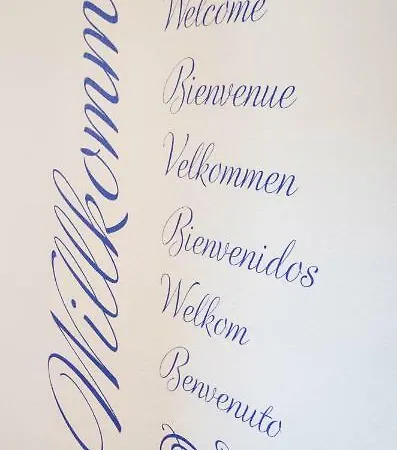 Willkomm
Welcome
Bienvenue
Velkommen
Bienvenidos
Welkom
Benvenuto